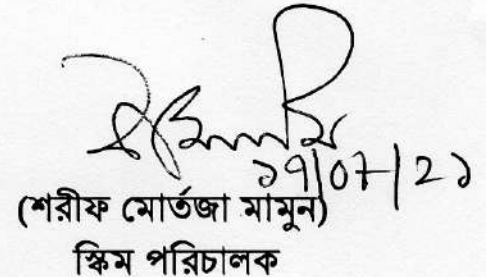 ১৭/০৭/২১
(শরীফ মোর্তজা মামুন)
স্কিম পরিচালক